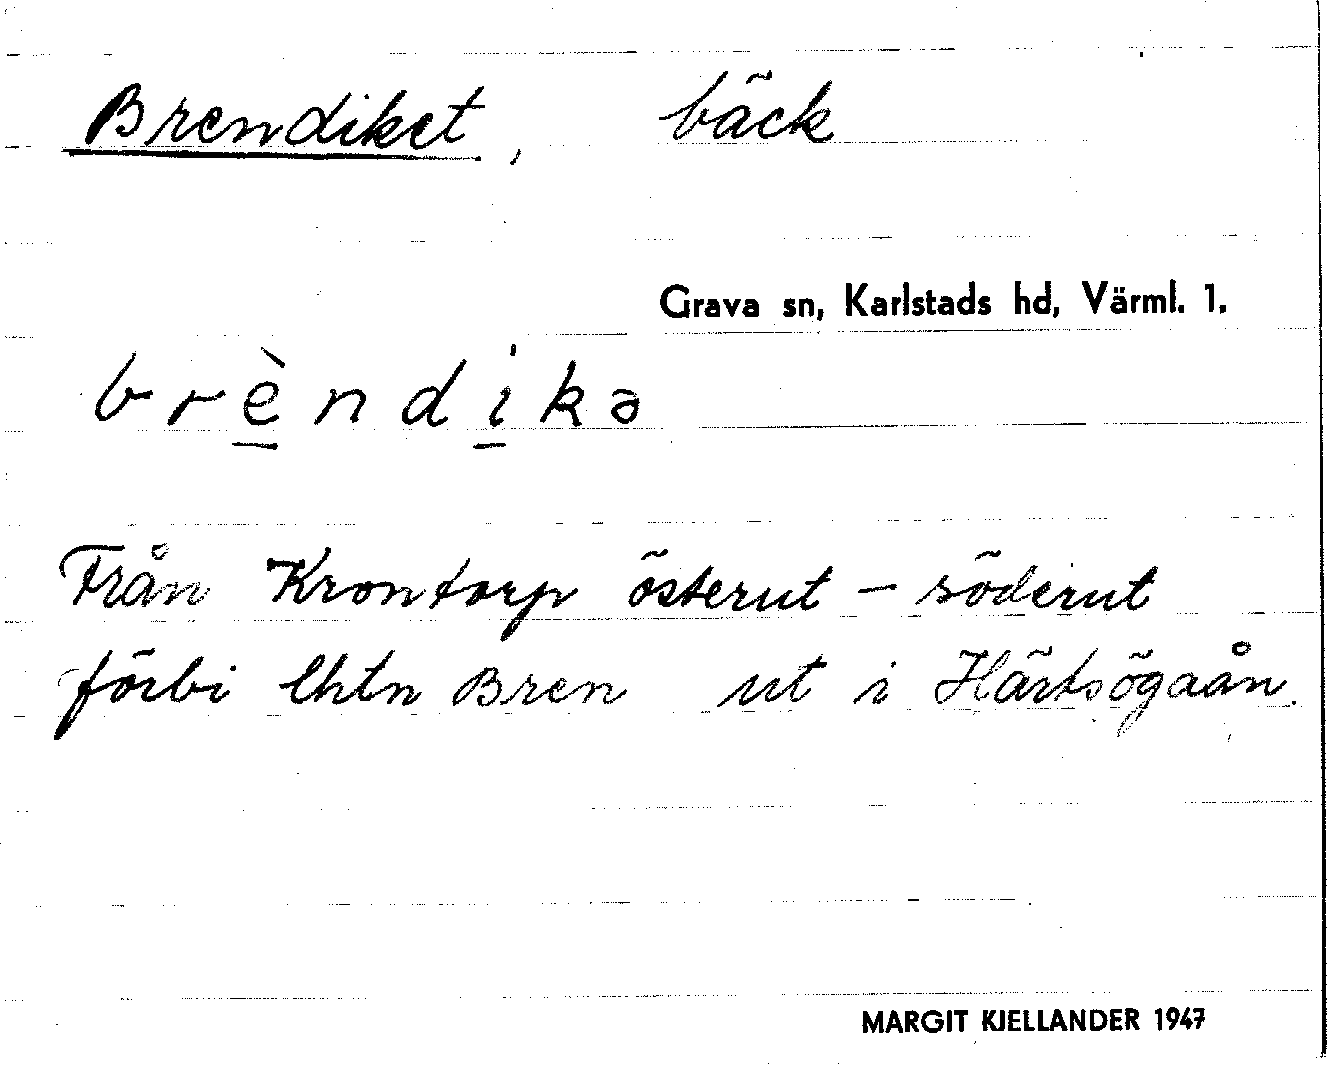 Brendiket, bäck
Grava sn, Karlstads hd, Värml. 1.
brèndikə
Från Krontorp österut - söderut
förbi lhtn Bren ut i Härtsögaån.
MARGIT KJELLANDER 1947